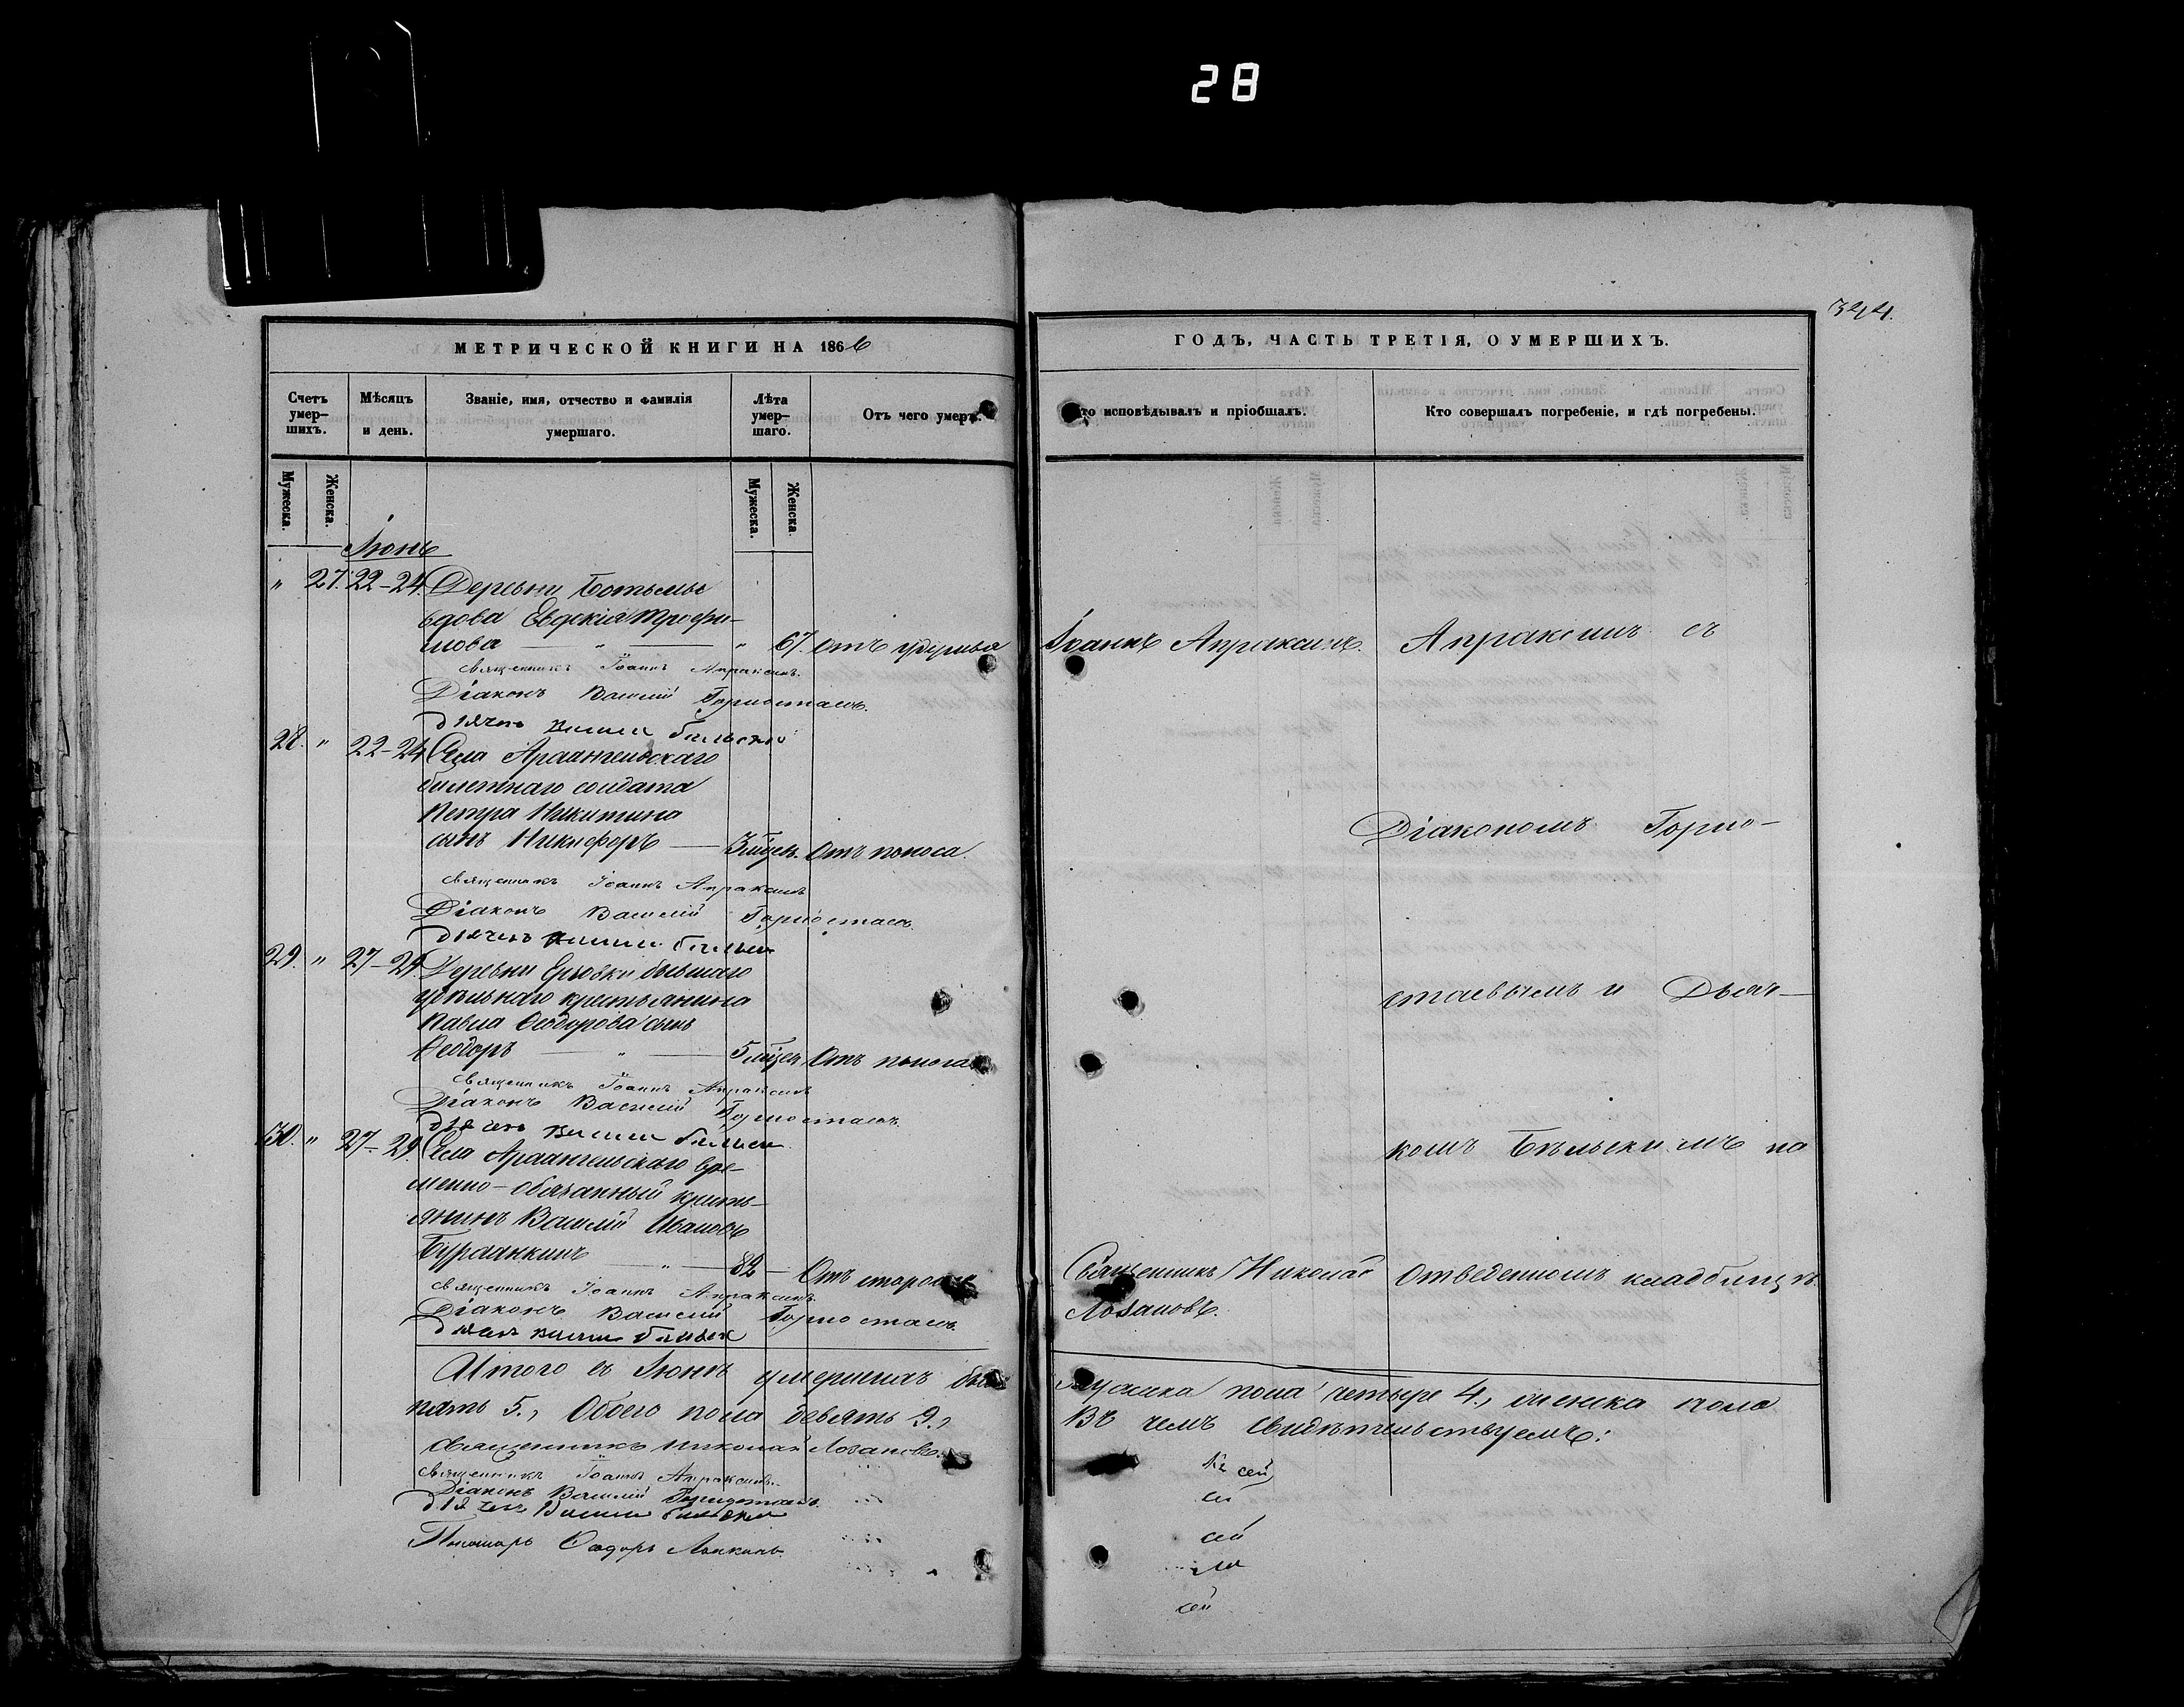 28
344.
МЕТРИЧЕСКОЙ КНИГИ НА 1866
Счетъ умер-
шихъ.
Мѣсяцъ
и день.
Званіе, имя, отчество и фамилія
умершаго.
Лѣта
умер-
шаго.
Отъ чего умеръ.
Мужеска.
Женска.
Мужеска.
Женска.
Іюнь
" 27. 22-24. Деревни
вдова Евдокія Трофи-
мова — " — " 67. отъ удушья
Священникъ Іоаннъ Апраксинъ.
Діаконъ Василій Горностаевъ.
Дьячекъ Василій Бѣльскій
28. " 22-24 Села Архангельскаго
билетнаго солдата
Петра Никитина
сынъ Никифоръ — 3 мѣсяц. Отъ поноса.
Священникъ Іоаннъ Апраксинъ
Діаконъ Василій Горностаевъ.
Дьячекъ Василій Бѣльскій
29. " 27-29. Деревни Ерзовки бывшаго
удѣльнаго крестьянина
Павла Ѳеодорова сынъ
Ѳеодоръ — " — 5 мѣсяц. Отъ поноса
Священникъ Іоаннъ Апраксинъ
Діаконъ Василій Горностаевъ.
Дьячекъ Василій Бѣльскій
30. " 27-29. Села Архангельскаго вре-
менно-обязанный кресть-
янинъ Василій Ивановъ
— " — 82 — Отъ старости
Священникъ Іоаннъ Апраксинъ.
Діаконъ Василій Горностаевъ.
Дьячекъ Василій Бѣльскій
Итого въ Іюнѣ умершихъ было
пять 5., Обоего пола девять 9.,
Священникъ Николай Лозановъ.
Священникъ Іоаннъ Апраксинъ.
Діаконъ Василій Горностаевъ.
Дьячекъ Василій Бѣльскій
Пономарь Ѳедоръ
ГОДЪ, ЧАСТЬ ТРЕТІЯ, О УМЕРШИХЪ.
Кто исповѣдывалъ и пріобщалъ.
Кто совершалъ погребеніе, и гдѣ погребены.
Іоаннъ Апраксинъ. Апраксинъ съ
Діакономъ Горно-
стаевымъ и Дьяч-
комъ Бѣльскимъ на
Священникъ Николай отведенномъ кладбищѣ.
Лозановъ.
Мужска пола четыре 4., женска пола
Въ чемъ свидѣтельствуемъ:
сей
сей
сей